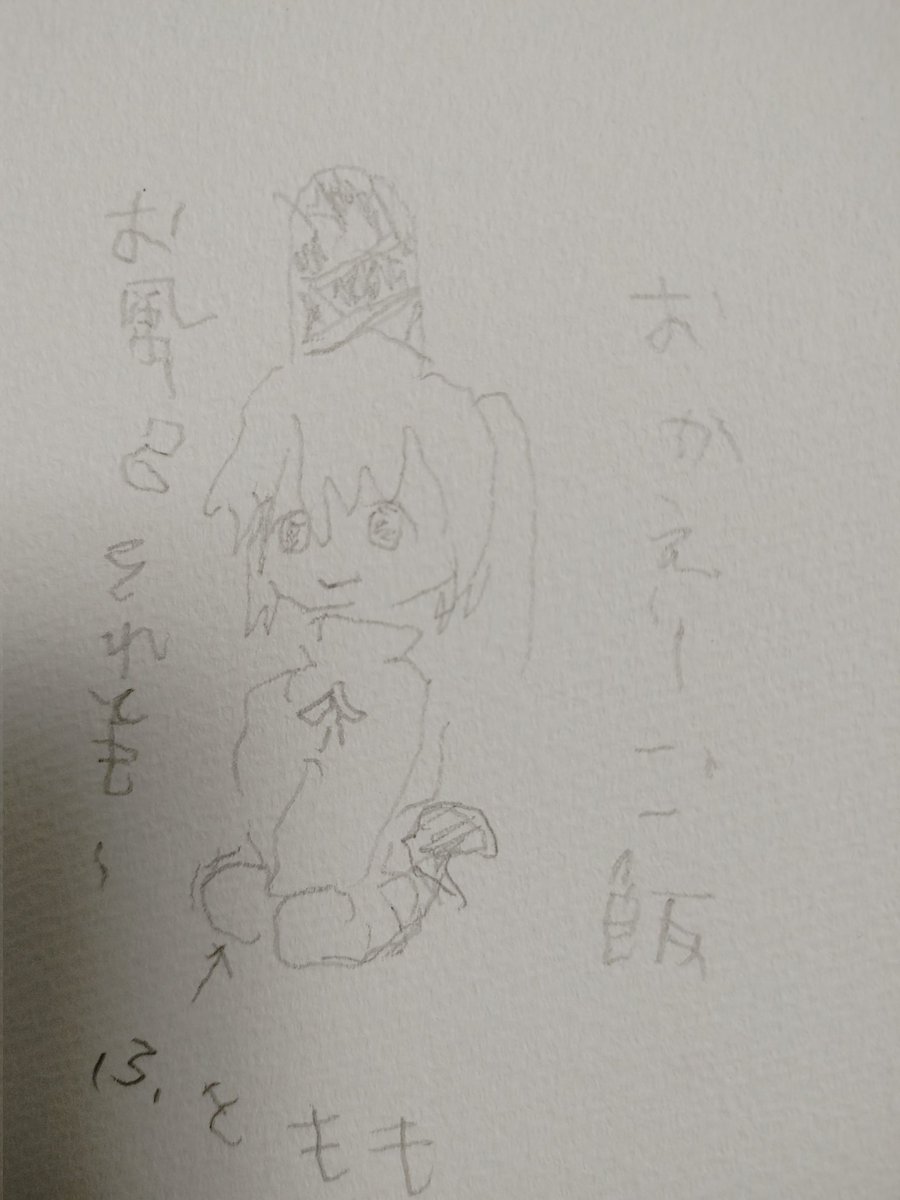 おかえりご飯
お風呂それとも~
ふともも